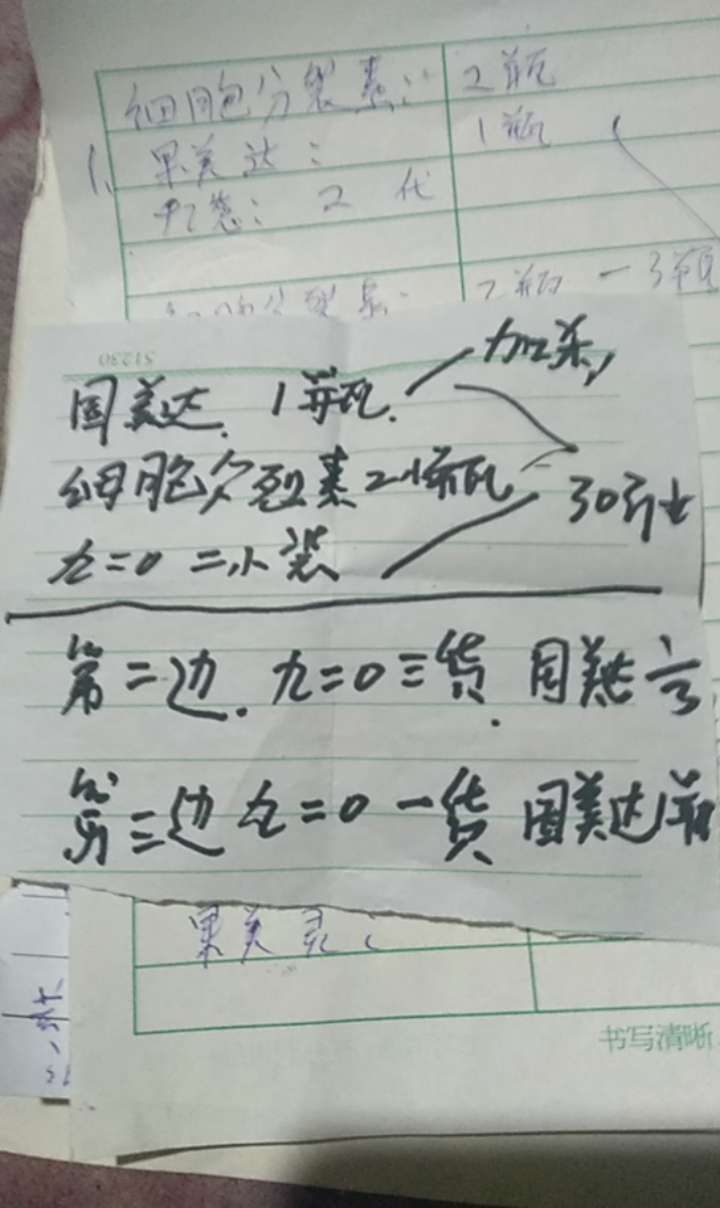 细胞分裂素: 2瓶
1、果美达: 1瓶
2代
2瓶一3瓶
51230
国美达. 1瓶. 加杀
细胞分裂素2小瓶 30斤
九二0 二小袋
第二边. 九二0三货. 国美达
第三边九二0一货 国美达1瓶
果美灵:
书写清晰